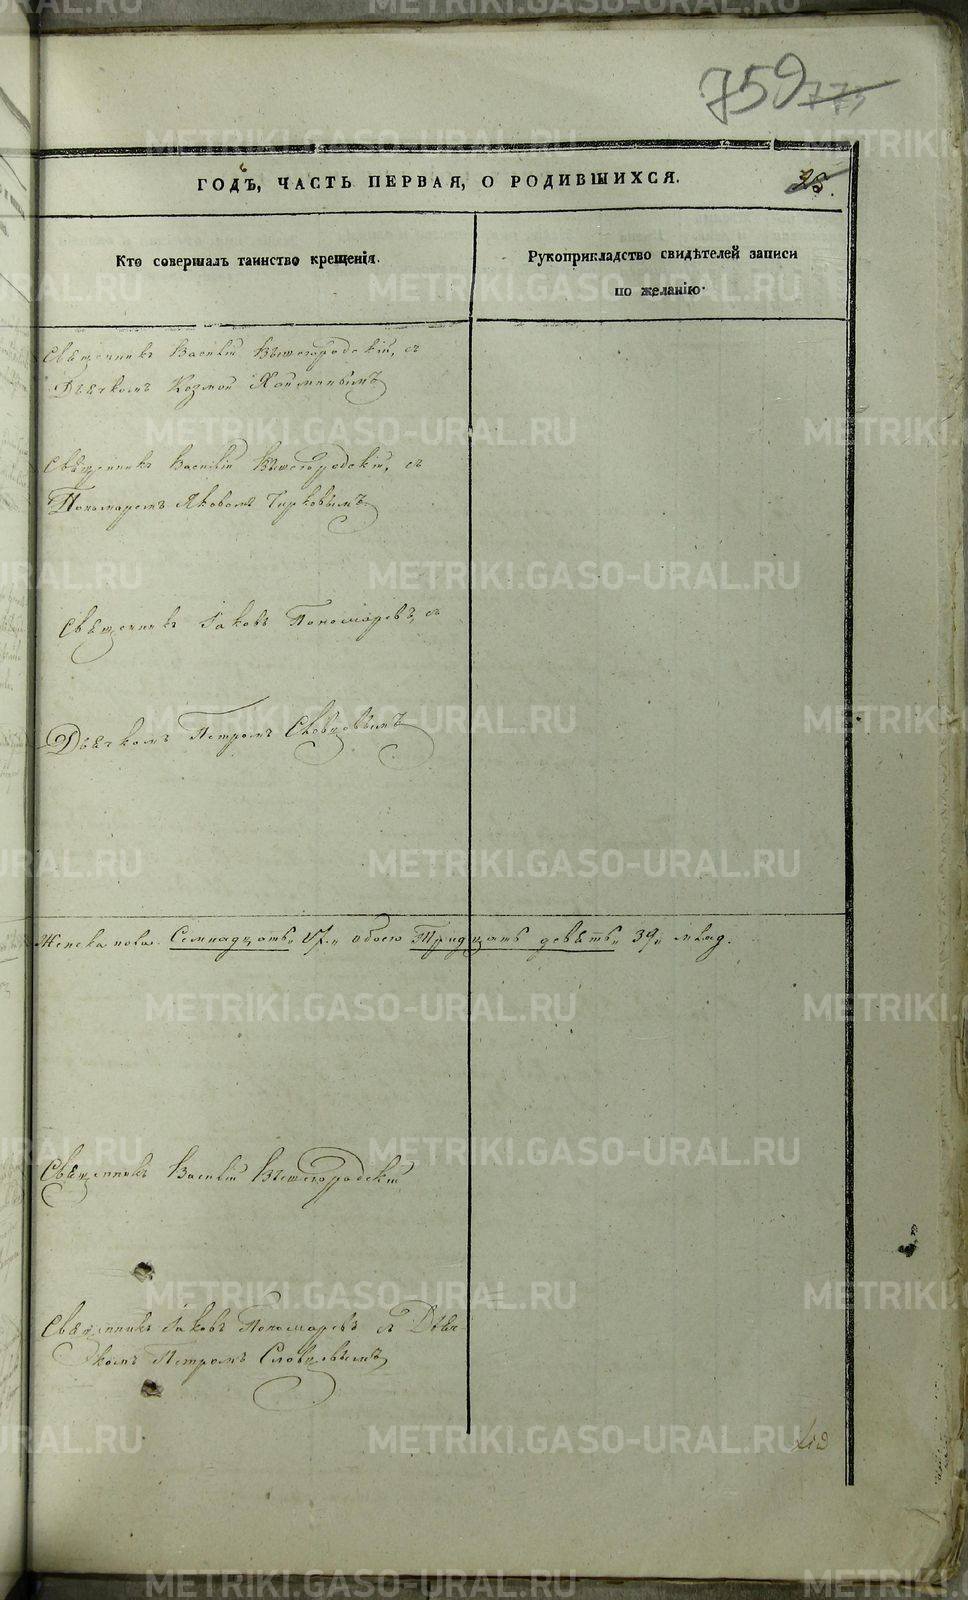 759 775
ГОДЪ, ЧАСТЬ ПЕРВАЯ, О РОДИВШИХСЯ. 25.
Кто совершалъ таинство крещенія.
Рукоприкладство свидѣтелей записи
по желанію.
Священникъ Василій Вышегородскій, съ
Дьячкомъ Козмой
Священникъ Василій Вышегородскій, съ
Пономаремъ Яковомъ Чирковымъ
Священникъ Іаковъ Пономаревъ, съ
Дьячкомъ Петромъ Словцовымъ
Женска пола Семнадцать 17. обоего Тридцать девять 39. млад.
Священникъ Василій Вышегородскій
Священникъ Іаковъ Пономаревъ съ Дьяч
комъ Петромъ Словцовымъ
METRIKI.GASO-URAL.RU